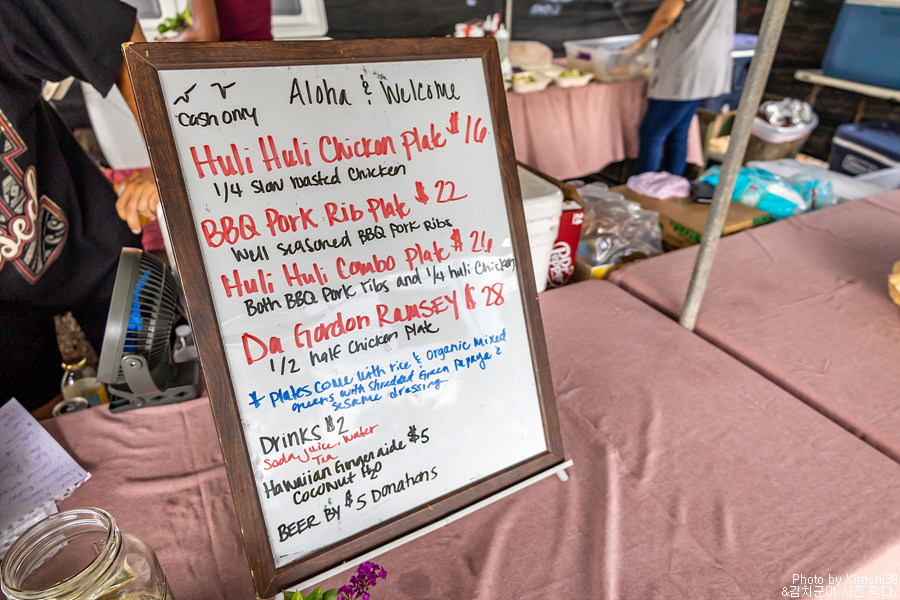 Cash only
Aloha & Welcome
Huli Huli Chicken Plate $16
1/4 Slow roasted Chicken
BBQ Pork Rib Plate $22
Well seasoned BBQ Pork Ribs
Huli Huli Combo Plate $26
Both BBQ Pork ribs and 1/4 huli Chicken
Da Gordon RAMSEY $28
1/2 half Chicken Plate
* Plates come with rice & organic mixed
greens with shredded Green Papaya &
sesame dressing
DRINKS $2
Soda, Juice, Water
Tea
Hawaiian Gingeraide $5
Coconut H2O
BEER BY $5 Donations
Photo by Kimchi39
&김치군의 사진 찍다.